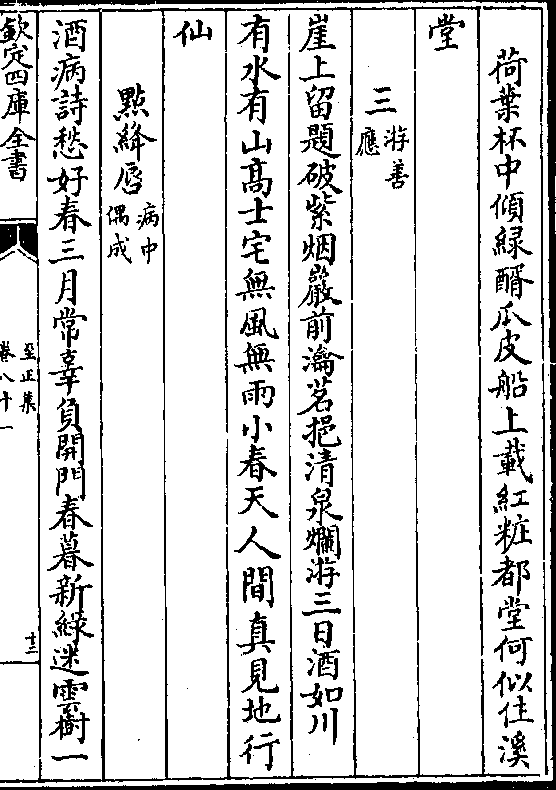 荷葉杯中傾緑醑瓜皮船上載紅粧都堂何似住溪
堂
三
游善
應
崖上留題破紫烟巖前瀹茗挹清泉爛游三日酒如川
有水有山髙士宅無風無雨小春天人間真見地行
仙
點絳唇
病中
偶成
酒病詩愁好春三月常辜負開門春暮新緑迷雲樹一
欽定四庫全書
至正集
卷八十一
十三